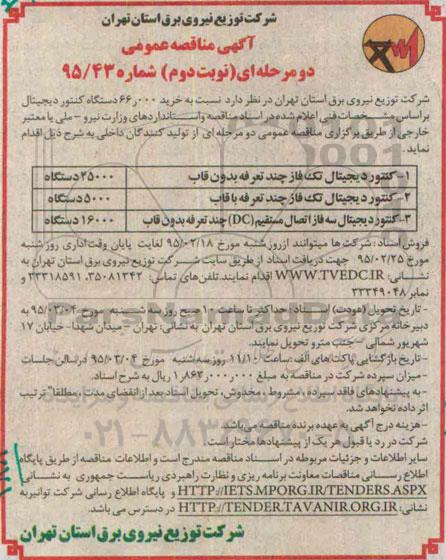 شرکت توزیع نیروی برق استان تهران
آگهی مناقصه عمومی
دو مرحله ای (نوبت دوم) شماره ۹۵/۴۳
شرکت توزیع نیروی برق استان تهران در نظر دارد نسبت به خرید ۶۶٫۰۰۰ دستگاه کنتور دیجیتال
براساس مشخصات فنی اعلام شده در اسناد مناقصه واستانداردهای وزارت نیرو - ملی یا معتبر
خارجی از طریق برگزاری مناقصه عمومی دو مرحله ای از تولید کنندگان داخلی به شرح ذیل اقدام
نماید.
۱- کنتور دیجیتال تک فاز چند تعرفه بدون قاب ۴۵۰۰۰ دستگاه
۲- کنتور دیجیتال تک فاز چند تعرفه با قاب ۵۰۰۰ دستگاه
۳- کنتور دیجیتال سه فاز اتصال مستقیم (DC) چند تعرفه بدون قاب ۱۶۰۰۰ دستگاه
فروش اسناد: شرکت ها میتوانند از روز شنبه مورخ ۹۵/۰۲/۱۸ لغایت پایان وقت اداری روز شنبه
مورخ ۹۵/۰۲/۲۵ جهت دریافت اسناد از طریق سایت شرکت توزیع نیروی برق استان تهران به
نشانی: WWW.TVEDC.IR اقدام نمایند. تلفن های تماس: ۳۵۰۸۱۳۴۲، ۳۳۳۱۸۵۹۱ و
نمابر ۳۳۳۴۹۰۴۸
- تاریخ تحویل (عودت) اسناد: حداکثر تا ساعت ۱۰ صبح روز سه شنبه مورخ ۹۵/۰۳/۰۴ به
دبیرخانه مرکزی شرکت توزیع نیروی برق استان تهران به نشانی: تهران - میدان شهدا - خیابان ۱۷
شهریور شمالی - جنب مترو تحویل نمایند.
- تاریخ بازگشایی پاکت های الف: ساعت ۱۱/۱۰ روز سه شنبه مورخ ۹۵/۰۳/۰۴ در سالن جلسات
- میزان سپرده شرکت در مناقصه به مبلغ ۱٫۸۶۳٫۰۰۰٫۰۰۰ ریال به شرح اسناد.
- به پیشنهادهای فاقد سپرده، مشروط، مخدوش، تحویل اسناد بعد از انقضای مدت، مطلقا" ترتیب
اثر داده نخواهد شد.
- هزینه درج آگهی به عهده برنده مناقصه می باشد.
شرکت در رد یا قبول هر یک از پیشنهادها مختار است.
سایر اطلاعات و جزئیات مربوطه در اسناد مناقصه مندرج است و اطلاعات مناقصه از طریق پایگاه
اطلاع رسانی مناقصات معاونت برنامه ریزی و نظارت راهبردی ریاست جمهوری به نشانی
HTTP://IETS.MPORG.IR/TENDERS.ASPX و پایگاه اطلاع رسانی شرکت توانیر به
نشانی: HTTP://TENDER.TAVANIR.ORG.IR در دسترس می باشد.
شرکت توزیع نیروی برق استان تهران